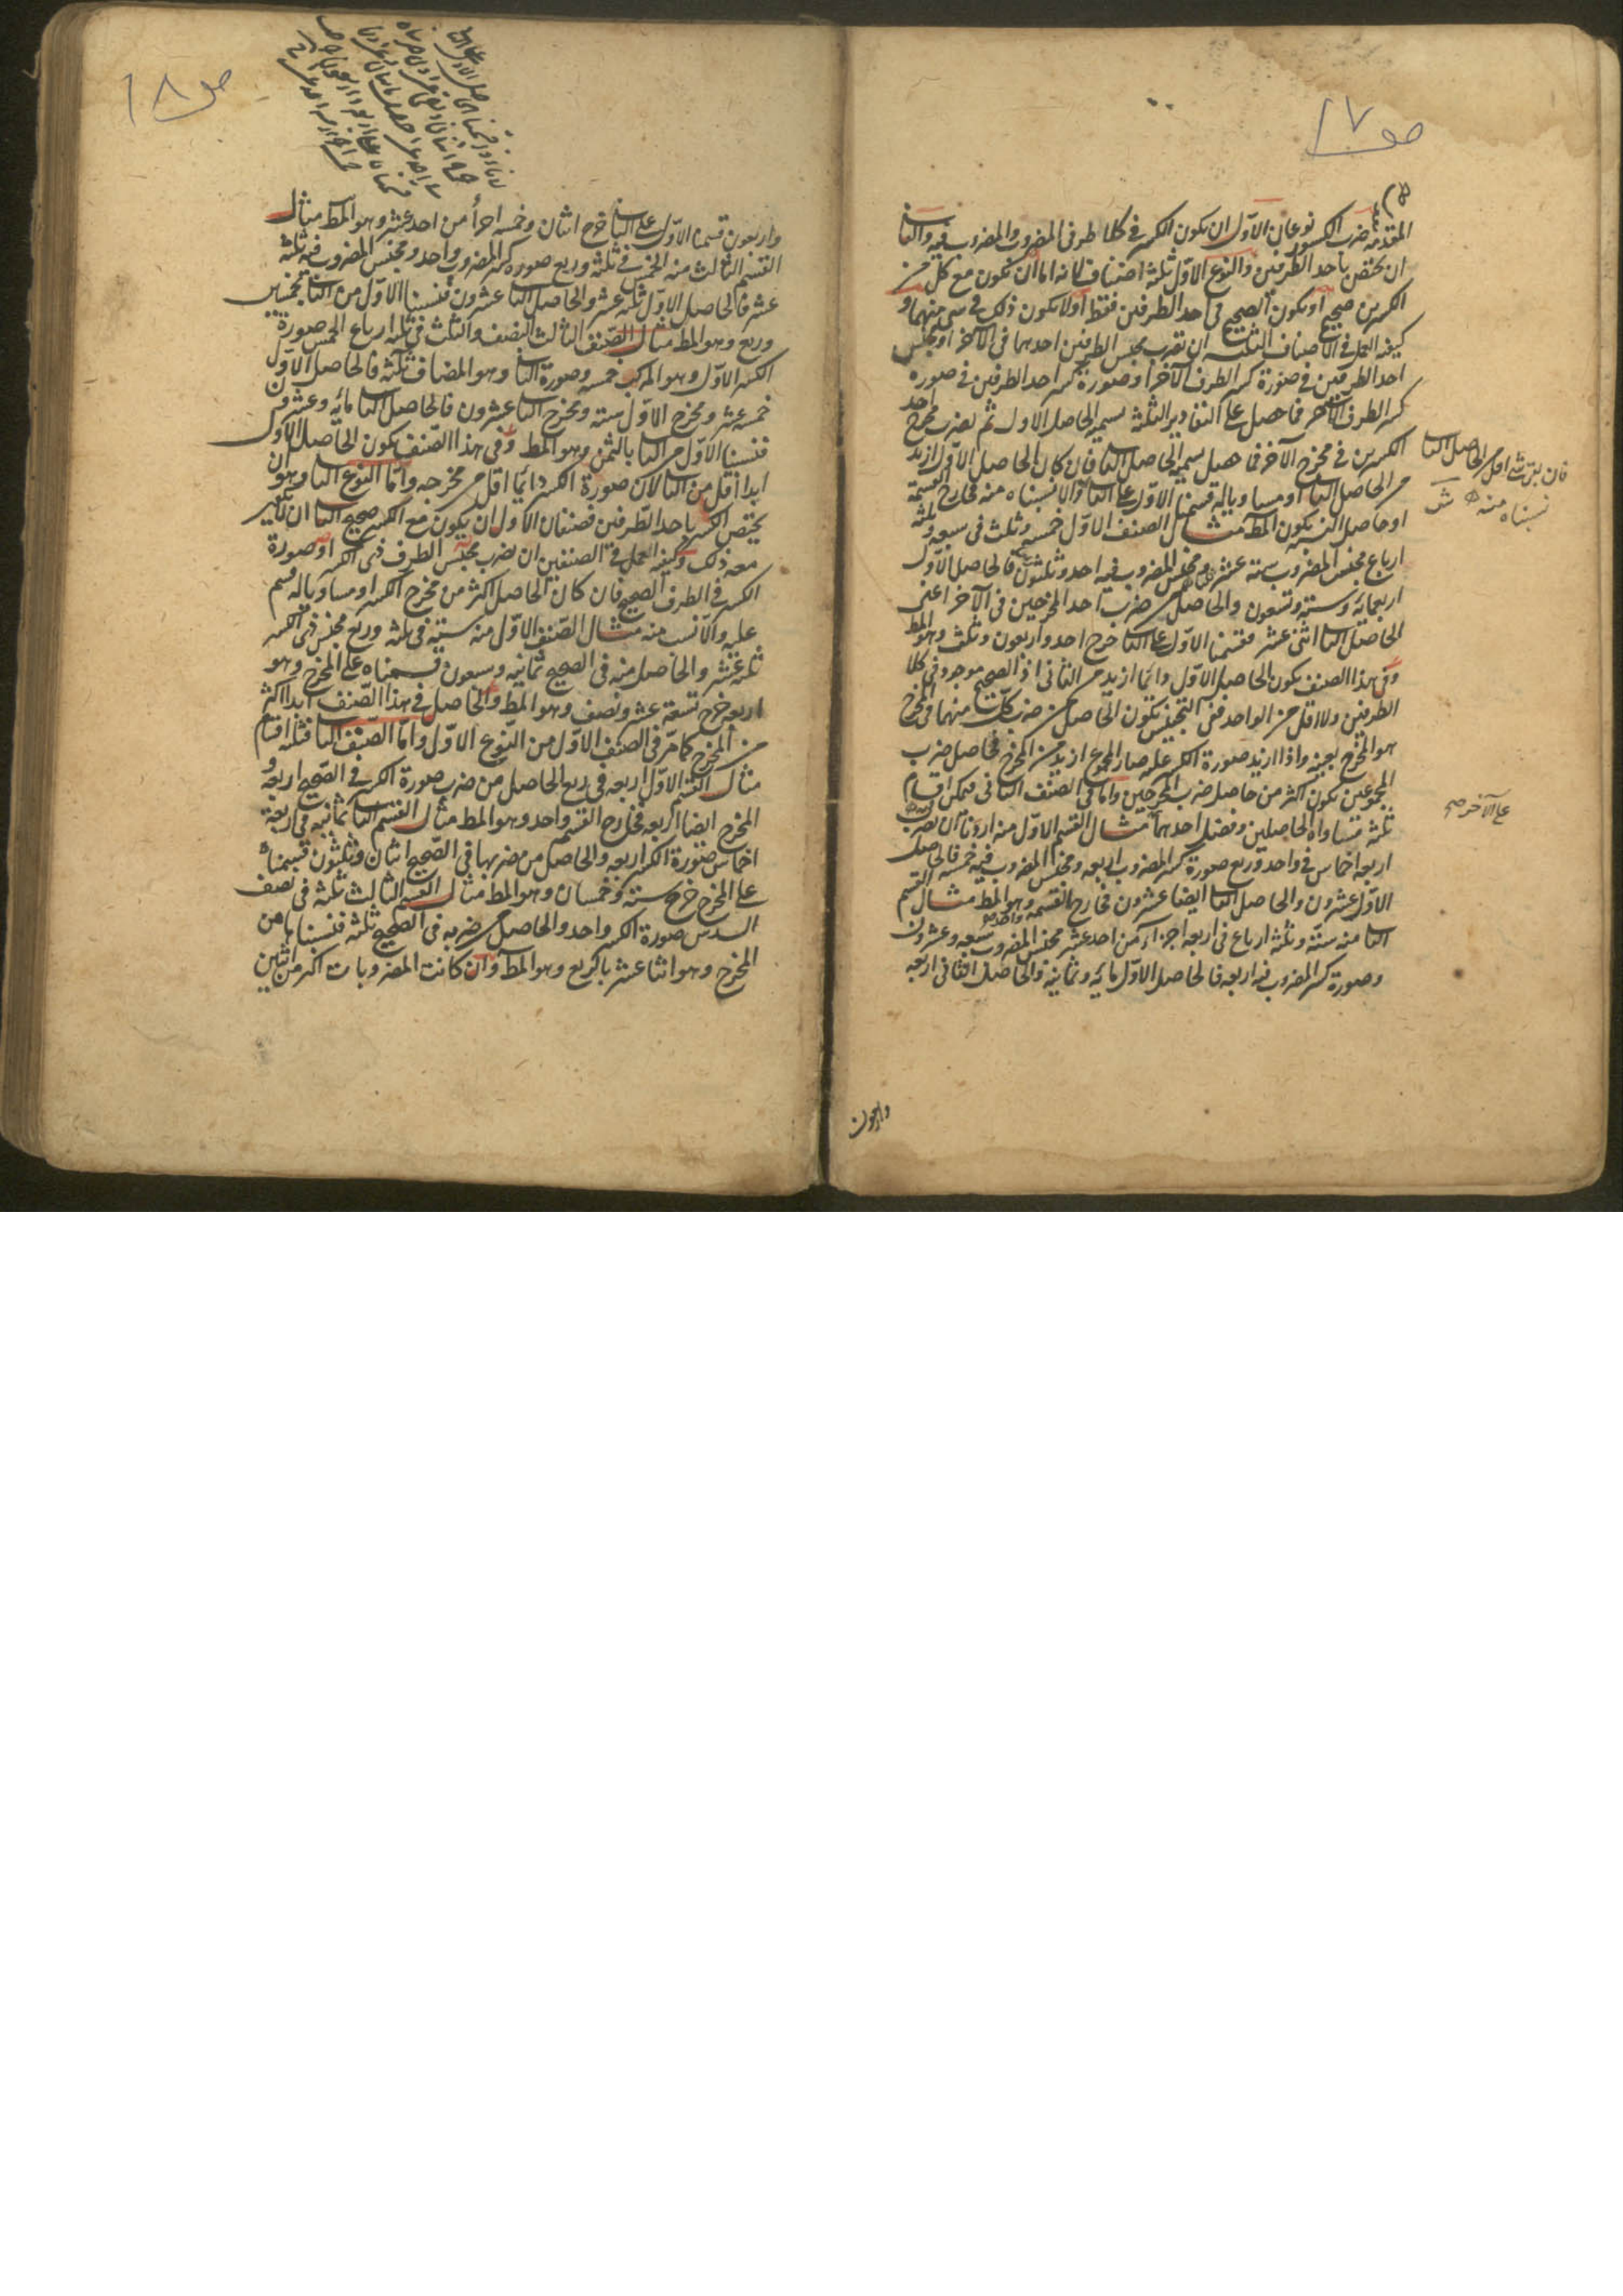 صو ١٧
المقدمة ضرب الكسور نوعان الاول ان يكون الكسر في كلا طرفي المضروب والمضروب فيه والثا
ان يختص باحد الطرفين والنوع الاول ثلثة اصناف لانه اما ان يكون مع كل من
الكسرين صحيح او يكون الصحيح في احد الطرفين فقط او لا يكون ذلك في شئ منهما و
كيفية العمل في الاصناف الثلثة ان تضرب مجنس الطرفين احدهما في الآخر او مجنس
احد الطرفين في صورة كسر الطرف الآخر او صورة كسر احد الطرفين في صورة
كسر الطرف الآخر فما حصل على التقادير الثلثة نسميه الحاصل الاول ثم نضرب مخرج احد
الكسرين في مخرج الآخر فما حصل نسميه الحاصل الثا فان كان الحاصل الاول ازيد
من الحاصل الثا او مساويا له قسمنا الاول على الثا والا نسبناه منه فخارج القسمة
او حاصل النسبة يكون المط مثال الصنف الاول خمسة وثلث في سبعة وثلثة
ارباع مجنس المضروب ستة عشر ومجنس المضروب فيه احد وثلثون فالحاصل الاول
اربعمائة وستة وتسعون والحاصل من ضرب احد المخرجين في الآخر اعني
الحاصل الثا اثنى عشر فقسمنا الاول على الثا خرج احد واربعون وثلث وهو المط
وفي هذا الصنف يكون الحاصل الاول دائما ازيد من الثاني اذ الصحيح موجود في كلا
الطرفين ولا اقل من الواحد ففي التجنيس يكون الحاصل من ضرب كل منهما في المخرج
هو المخرج بعينه واذا ازيد صورة الكسر عليه صار المجموع ازيد من المخرج فحاصل ضرب
المجموعين يكون اكثر من حاصل ضرب المخرجين واما في الصنف الثاني فيمكن اقسام
ثلثة تساوي الحاصلين وفضل احدهما مثال القسم الاول منه اردنا ان نضرب
اربعة اخماس في واحد وربع صورة كسر المضروب اربعة ومجنس المضروب فيه خمسة فالحاصل
الاول عشرون والحاصل الثا ايضا عشرون فخارج القسمة واحد وهو المط مثال القسم
الثا منه ستة وثلثة ارباع في اربعة اجزاء من احد عشر مجنس المضروب سبعة وعشرون
وصورة كسر المضروب فيه اربعة فالحاصل الاول مائة وثمانية والحاصل الثاني اربعة
فان نقص اقل من الحاصل الثا
نسبناه منه
على الآخر صح
واربعون
صو ١٨
واربعون قسمنا الاول على الثا خرج اثنان وخمسة اجزأ من احد عشر وهو المط مثال
القسم الثالث منه الخمس في ثلثة وربع صورة كسر المضروب واحد ومجنس المضروب فيه ثلثة
عشر فالحاصل الاول ثلثة عشر والحاصل الثا عشرون فنسبنا الاول من الثا بخمسين
وربع وهو المط مثال الصنف الثالث النصف والثلث في ثلثة ارباع الخمس صورة
الكسر الاول وهو المركب خمسة وصورة الثا وهو المضاف ثلثة فالحاصل الاول
خمسة عشر ومخرج الاول ستة ومخرج الثا عشرون فالحاصل الثا مائة وعشرون
فنسبنا الاول من الثا بالثمن وهو المط وفي هذا الصنف يكون الحاصل الاول
ابدا اقل من الثا لان صورة الكسر دائما اقل من مخرجه واما النوع الثا وهو ان
يختص الكسر باحد الطرفين فصنفان الاول ان يكون مع الكسر صحيح الثا ان لا يكون
معه ذلك وكيفية العمل في الصنفين ان نضرب مجنس الطرف ذي الكسر او صورة
الكسر في الطرف الصحيح فان كان الحاصل اكثر من مخرج الكسر او مساويا له قسم
عليه والا نسب منه مثال الصنف الاول منه ستة في ثلثة وربع مجنس ذي الكسر
ثلثة عشر والحاصل منه في الصحيح ثمانية وسبعون قسمناه على المخرج وهو
اربعة خرج تسعة عشر ونصف وهو المط والحاصل في هذا الصنف ابدا اكثر
من المخرج كما مر في الصنف الاول من النوع الاول واما الصنف الثا فثلثة اقسام
مثال القسم الاول اربعة في ربع الحاصل من ضرب صورة الكسر في الصحيح اربعة و
المخرج ايضا اربعة فخارج القسم واحد وهو المط مثال القسم الثا ثمانية في اربعة
اخماس صورة الكسر اربعة والحاصل من ضربها في الصحيح اثنان وثلثون قسمناه
على المخرج خرج ستة وخمسان وهو المط مثال القسم الثالث ثلثة في نصف
السدس صورة الكسر واحد والحاصل من ضربه في الصحيح ثلثة فنسبناها من
المخرج وهو اثنا عشر بالربع وهو المط وان كانت المضروبات اكثر من اثنين